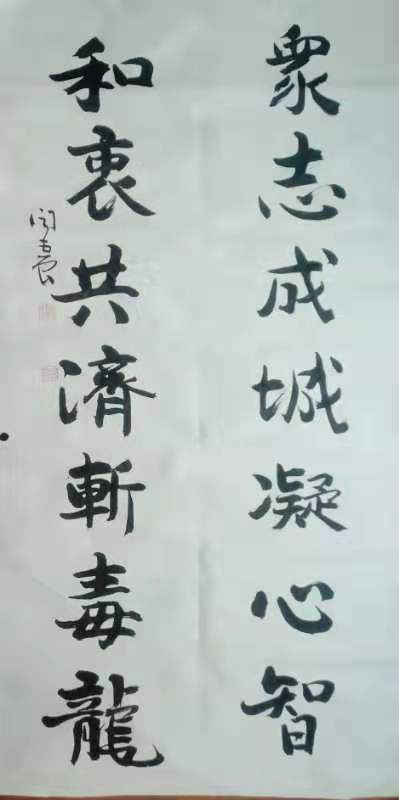 眾志成城凝心智
和衷共濟斬毒龍